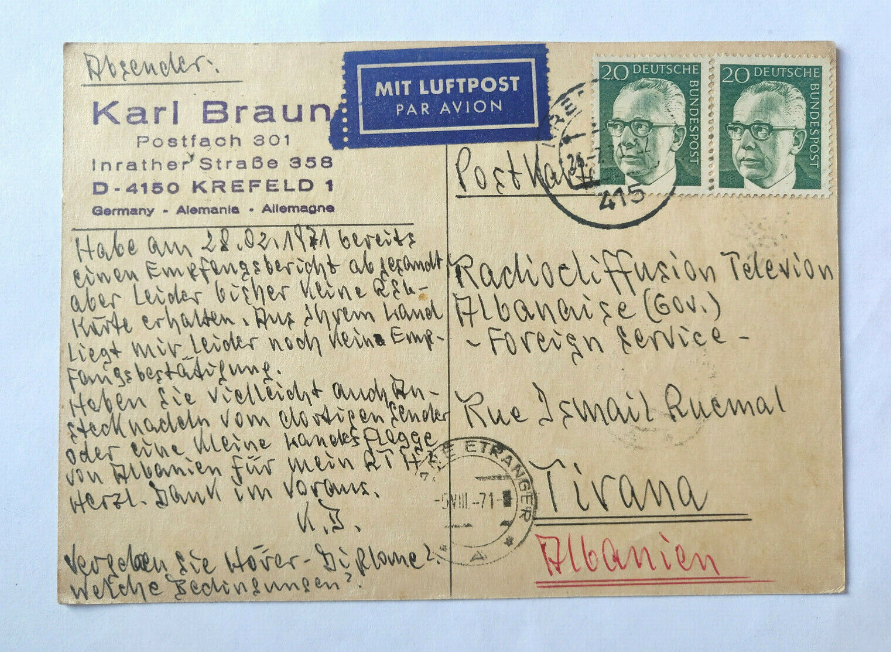 Absender:
Karl Braun
Postfach 301
Inrather Straße 358
D-4150 KREFELD 1
Germany - Alemania - Allemagne
Habe am 28.02.1971 bereits
einen Empfangsbericht abgesandt
aber leider bisher keine QSL-
Karte erhalten. Aus Ihrem Land
liegt mir leider noch keine Emp-
fangsbestätigung.
Haben Sie vielleicht auch An-
stecknadeln vom dortigen Sender
oder eine kleine Landesflagge
von Albanien für mein
Herzl. Dank im Voraus.
K.B.
Vergeben Sie Hörer-Diplome?
Welche Bedingungen?
MIT LUFTPOST
PAR AVION
20 DEUTSCHE
BUNDESPOST
20 DEUTSCHE
BUNDESPOST
415
Postkarte
Radiodiffusion Televion
Albanaise (Gov.)
- Foreign Service -
Rue Ismail Quemal
Tirana
Albanien
ETRANGER
-5VIII.-71-
A